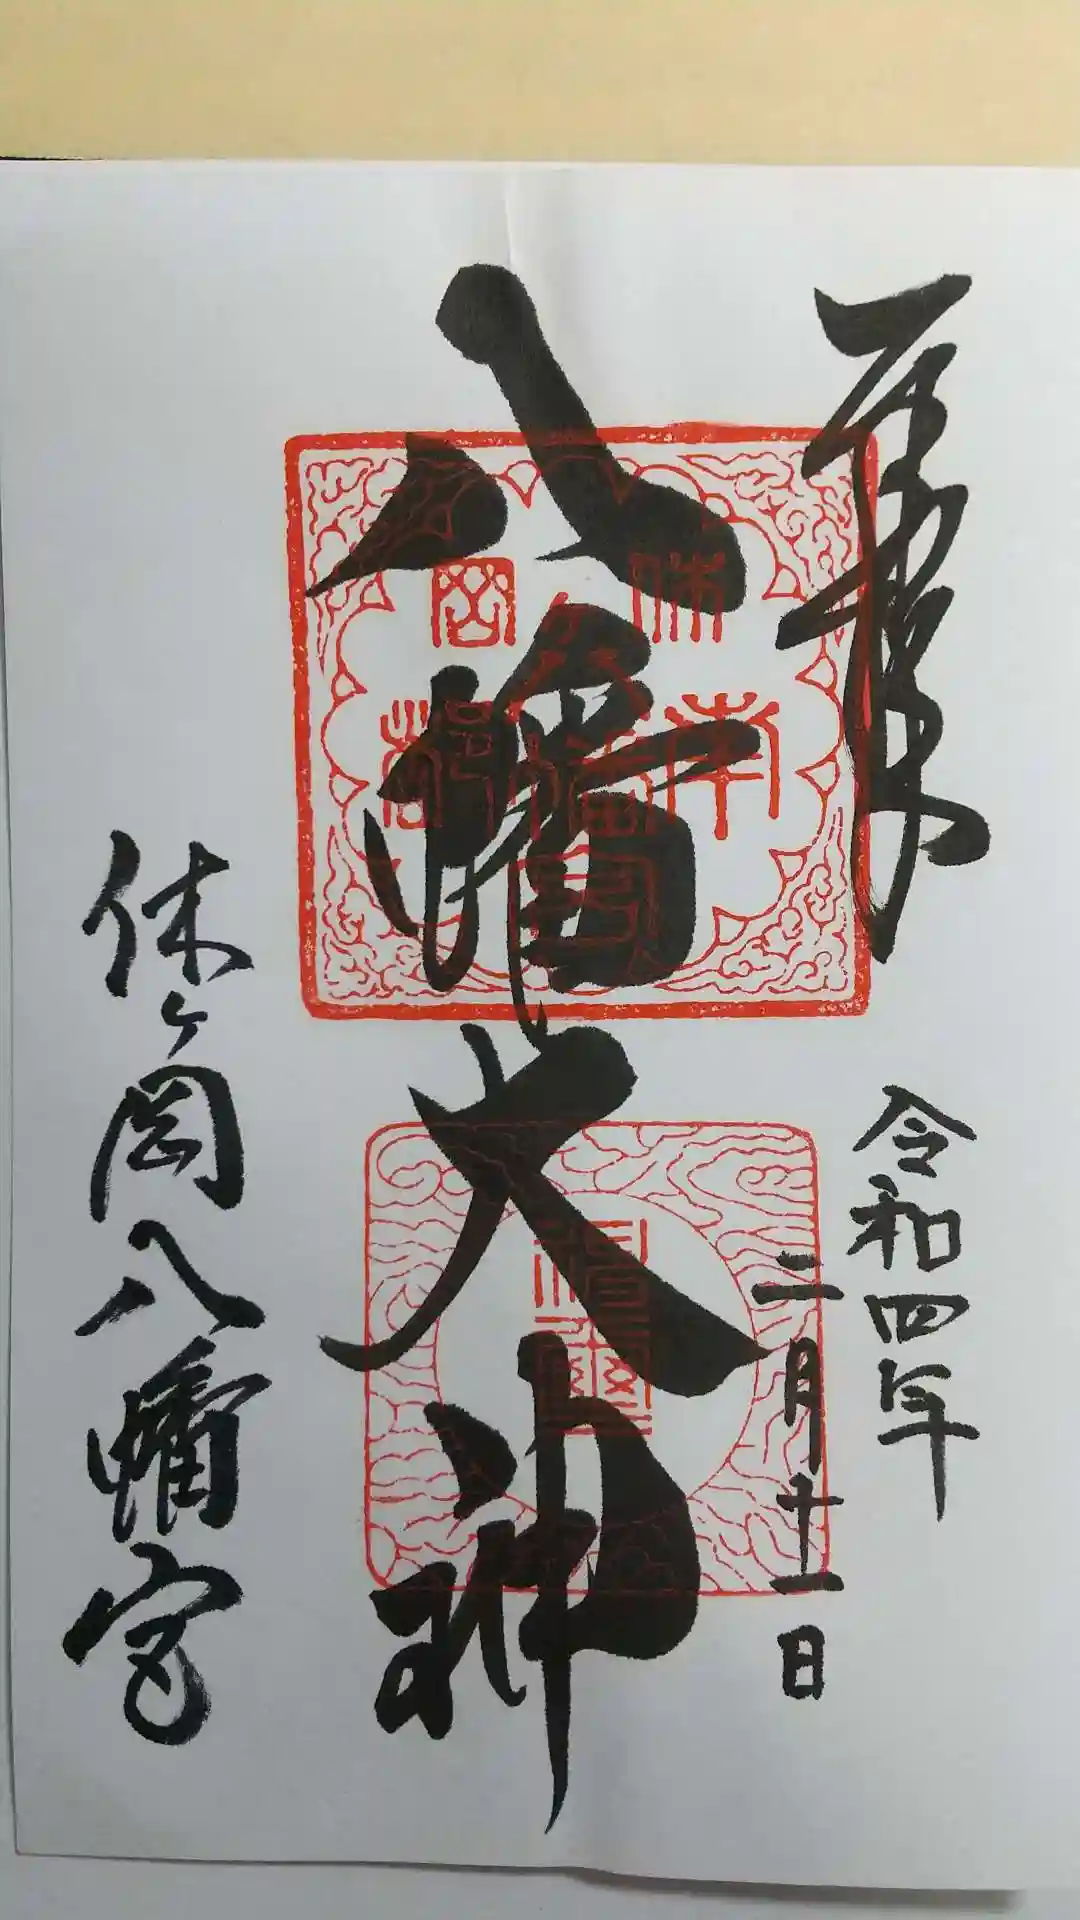 奉拝
令和四年
二月十一日
八幡大神
休ヶ岡八幡宮